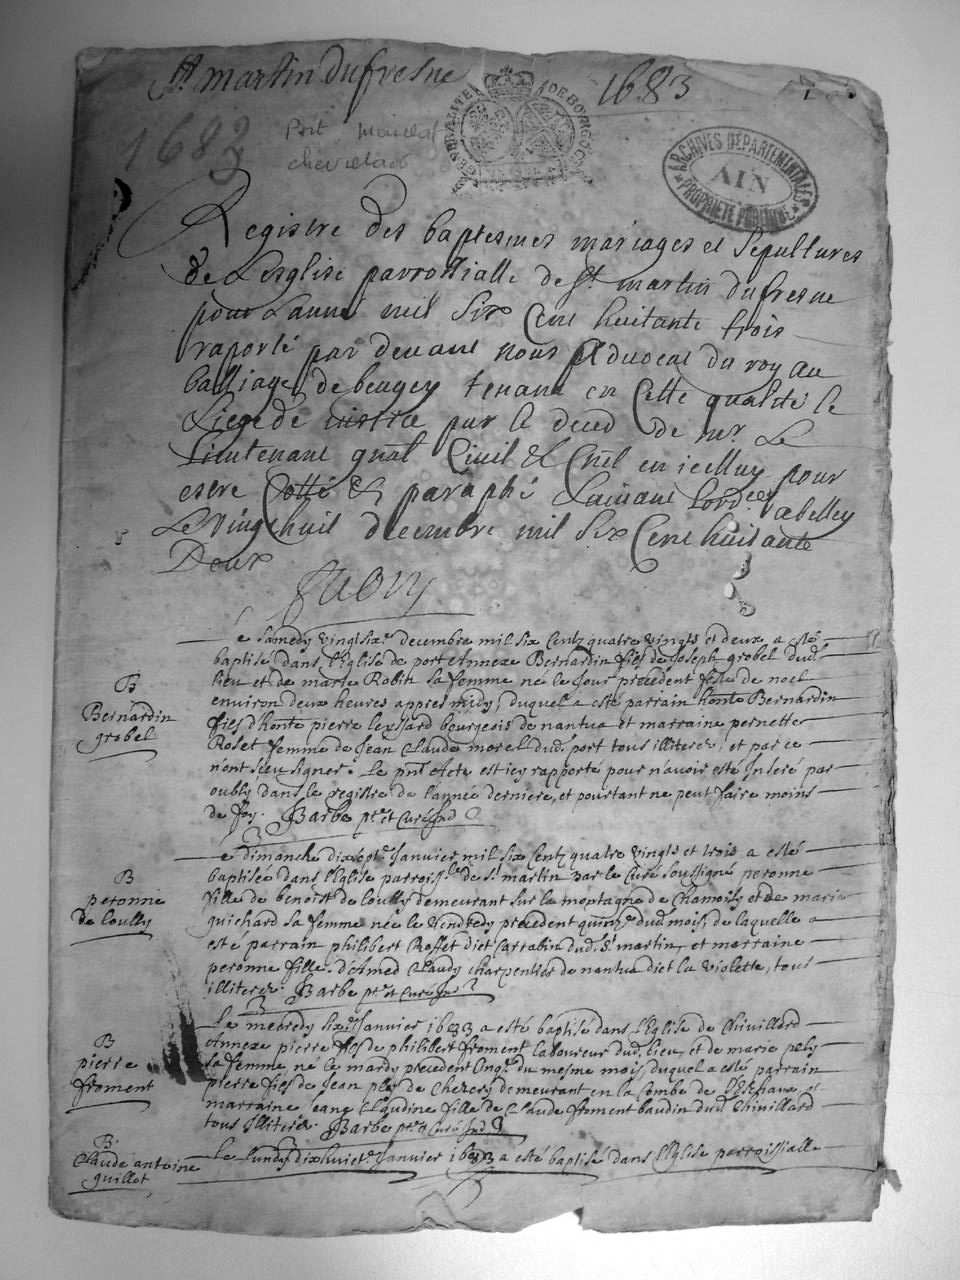 St martin dufresne 1683
GENERALITE DE BOURGOGNE
1683 Port
ARCHIVES DÉPARTEMENTALES
AIN
PROPRIÉTÉ PUBLIQUE
Registre des baptesmes mariages et sepultures
de Leglise parrossialle de st martin dufresne
pour Lanné mil six Cent huitante trois
raporté par deuant nous Aduocat du roy au
balliage de beugey tenant en Cette qualité le
siege de iustice pur le deced de mr Le
Lieutenant gnal Ciuil & Cnel en icelluy pour
estre Cotté & paraphé suiuant Lord.ce a belley
Le vingt huit decembre mil six Cent huitante
Deux
B
Bernardin
grobel
Le samedy vingtsix.e decembre mil six Centz quatre vingts et deux a esté
baptisé dans l'Eglise de port Annexe Bernardin fils de Joseph grobel dud.
lieu et de marie Robin sa femme né le Jour precedent feste de noel
environ deux heures appres midy, duquel a esté parrain honte Bernardin
fils d'honte pierre bourgeois de nantua et marraine pernette
Roset femme de Jean Claude morel dud. port tous illiterez, et par ce
n'ont sceu signer. Le pnt Acte est icy rapporté pour n'avoir esté Inseré par
oubly dans le registre de l'année derniere, et pourtant ne peut faire moins
de foy. Barbe ptre et Curé
B
peronne
de loully
Le dimanche dixsept.e Janvier mil six Centz quatre vingts et trois a esté
baptisée dans l'Eglise parroiss.le de st martin par le Curé soussigné peronne
fille de benoist de loully demeurant sur la montagne de Chamoisy et de marie
guichard sa femme née le Vendredy precedent quinz.e dud. mois, de laquelle a
esté parrain philibert Roffet diet Carrabin dud. St martin, et marraine
peronne fille d'Amed Claudy charpentier de nantua diet la violette, tous
illiterez. Barbe ptre et Curé
B
pierre
froment
Le mecredy Janvier 1683 a esté baptisé dans l'Eglise de Chivillard
Annexe pierre fils de philibert froment laboureur dud. lieu, et de marie
sa femme, né le mardy precedent du mesme mois, duquel a esté parrain
pierre fils de Jean de demeurant en la Combe de et
marraine Jeane Claudine fille de Claude froment baudin dud. Chivillard
tous Illiterez. Barbe ptre et Curé
B
Claude antoine
guillot
Le lundy dixhuict.e Janvier 1683 a esté baptisé dans l'Eglise parroissialle